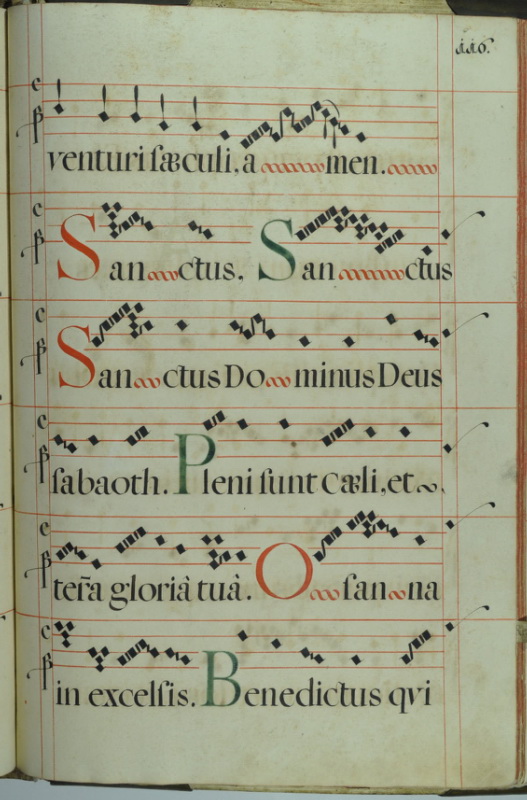 116.
venturi sæculi, a men.
San ctus. San ctus
San ctus Do minus Deus
sabaoth. Pleni sunt cæli, et
ter̃a gloriâ tuâ. O san na
in excelsis. Benedictus qvi